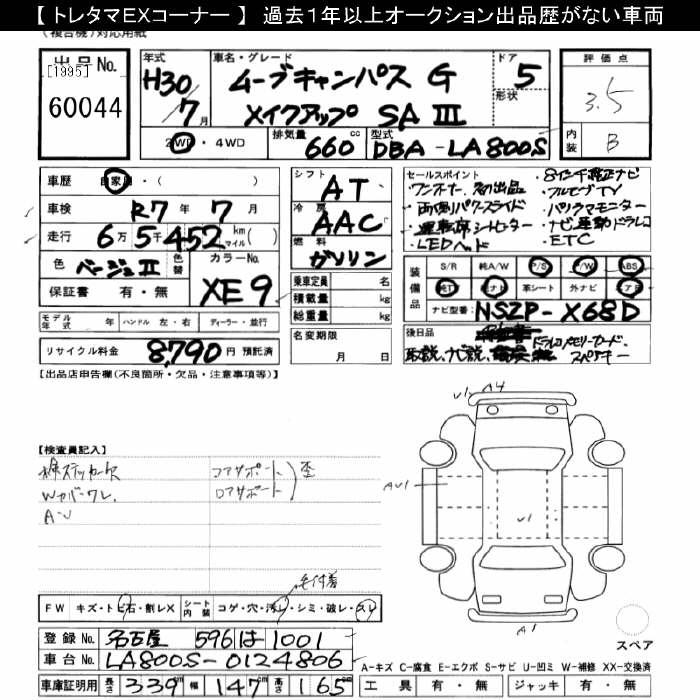 【 トレタマEXコーナー 】 過去1年以上オークション出品歴がない車両
(複合機)対応用紙
出品No.
[1995]
60044
年式
H30
7月
車名・グレード
ムーブキャンバス G
メイクアップ SA III
ドア
5
形状
2WD・4WD
排気量
660 cc
型式
DBA - LA800S
評価点
3.5
内装
B
車歴 自家用・( )
車検 R7年 7月
走行 6万5千452 km マイル( )
色 ベージュII 色替
カラーNo.
XE9
保証書 有・無
シフト
AT
冷房
AAC
燃料
ガソリン
乗車定員 名
積載量 kg
総重量 kg
名変期限
月 日
セールスポイント
・ワンオーナー 初出品
・両側パワースライド
・運転席シートヒーター
・LEDヘッド
・8インチ純正ナビ
・フルセグTV
・パノラマモニター
・ナビ連動ドラレコ
・ETC
装備品
S/R 純A/W P/S P/W ABS
純TV 純ナビ 革シート 外ナビ エアB
ナビ型番: NSZP-X68D
後日品
取説、ナビ説、
ドラレコメモリーカード、
スペアキー
モデル年式 年 ハンドル 左・右 ディーラー・並行
リサイクル料金 8,790 円 預託済
【出品店申告欄(不良箇所・欠品・注意事項等)】
【検査員記入】
Wカバークレ、
A・U
コアサポート
ロアサポート
歪
U1 A4
AU1
U1
A1
毛付着
FW キズ・トビ石・割レX
シート内装 コゲ・穴・汚レ・シミ・破レ・スレ
登録No. 名古屋 596 は 1001
車台No. LA800S-0124806
車庫証明用 長さ 339 cm 幅 147 cm 高さ 165 cm
スペア
A-キズ C-腐食 E-エクボ S-サビ U-凹ミ W-補修 XX-交換済
工具 有・無 ジャッキ 有・無